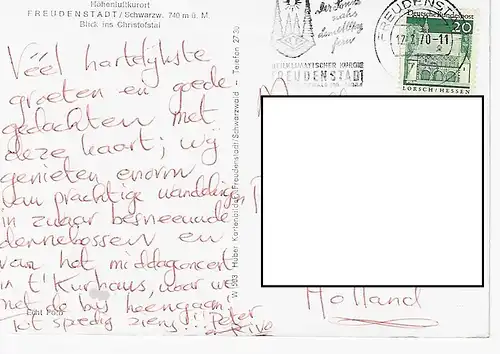 Höhenluftkurort
FREUDENSTADT / Schwarzw. 740 m ü. M.
Blick ins Christofstal
Véél hartelijkste
groeten en goede
gedachten met
deze kaart; wij
genieten enorm
van prachtige wandelingen
in zwaar besneeuwde
dennebossen en
van het middagconcert
in t' Kurhaus, waar we
net de bij heengaan
Echt Foto
Tot spoedig ziens!! Peter
W 903 Huber Kartenbilder, Freudenstadt/Schwarzwald - Telefon 2730
Der Sonne
nahs
dem Alltag
fern
HEILKLIMATISCHER KURORT
FREUDENSTADT
FREUDENSTADT
70-11
Deutsche Bundespost
20
LORSCH/HESSEN
Holland